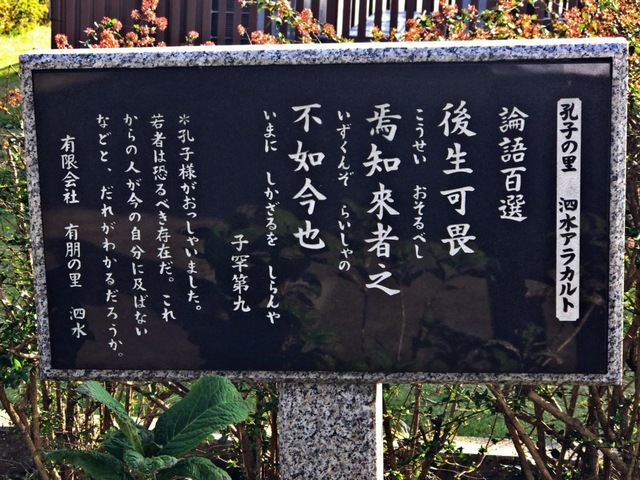 孔子の里 泗水アラカルト
論語百選
後生可畏
こうせい おそるべし
焉知來者之
いずくんぞ らいしゃの
不如今也
いまに しかざるを しらんや
子罕第九
＊孔子様がおっしゃいました。
若者は恐るべき存在だ。これ
からの人が今の自分に及ばない
などと、だれがわかるだろうか。
有限会社 有朋の里 泗水